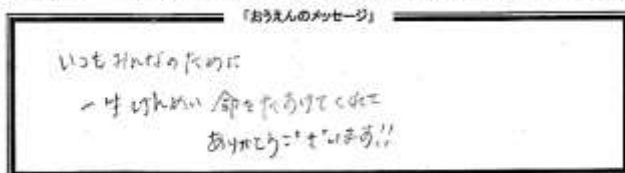 「おうえんのメッセージ」
いつもみんなのために
一生けんめい命をたすけてくれて
ありがとうございます!!